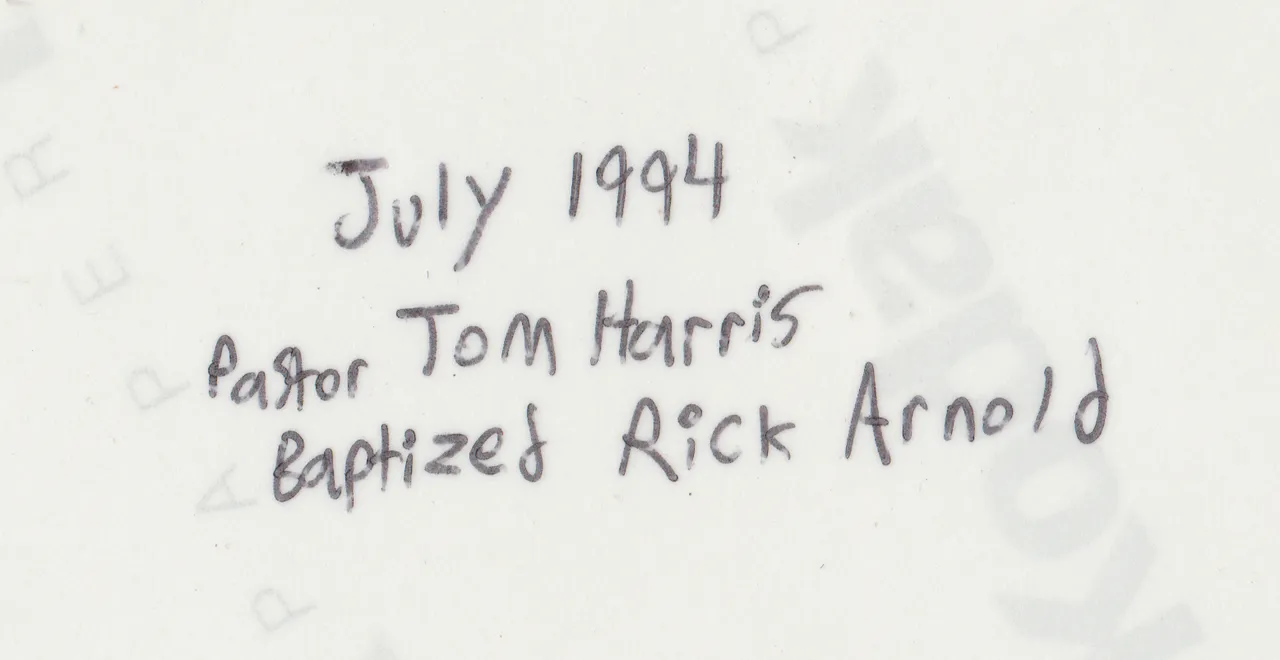 July 1994
Pastor Tom Harris
Baptized Rick Arnold
Kodak
PAPER
P